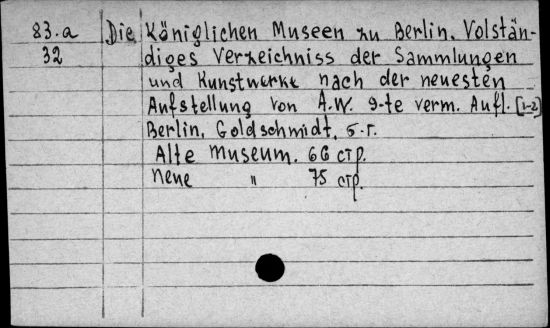 83.a Die Königlichen Museen zu Berlin. Volstän-
32 diges Verzeichniss der Sammlungen
und Kunstwerke nach der neuesten
Aufstellung von A.W. 9-te verm. Aufl. [1-2]
Berlin, Goldschmidt, б.г.
Alte Museum. 66 стр.
Neue " 75 стр.